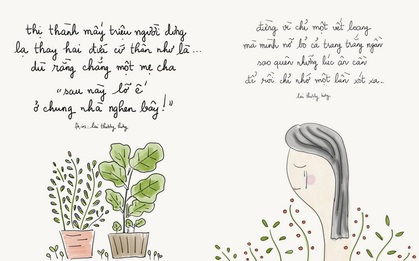 thị thành mấy triệu người dưng
lạ thay hai đứa cứ thân như là...
dù rằng chẳng một mẹ cha
"sau này lỡ ế
ở chung nhà nghen bây!"
đừng vì chỉ một vết loang
mà mình nỡ bỏ cả trang trắng ngần
sao quên những lúc ân cần
để rồi chỉ nhớ một lần xót xa...